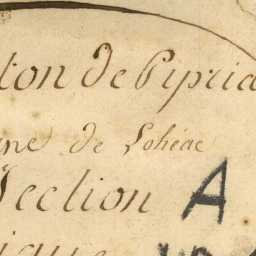 ton de Pipria
ne de Lohéac
Section A
ique